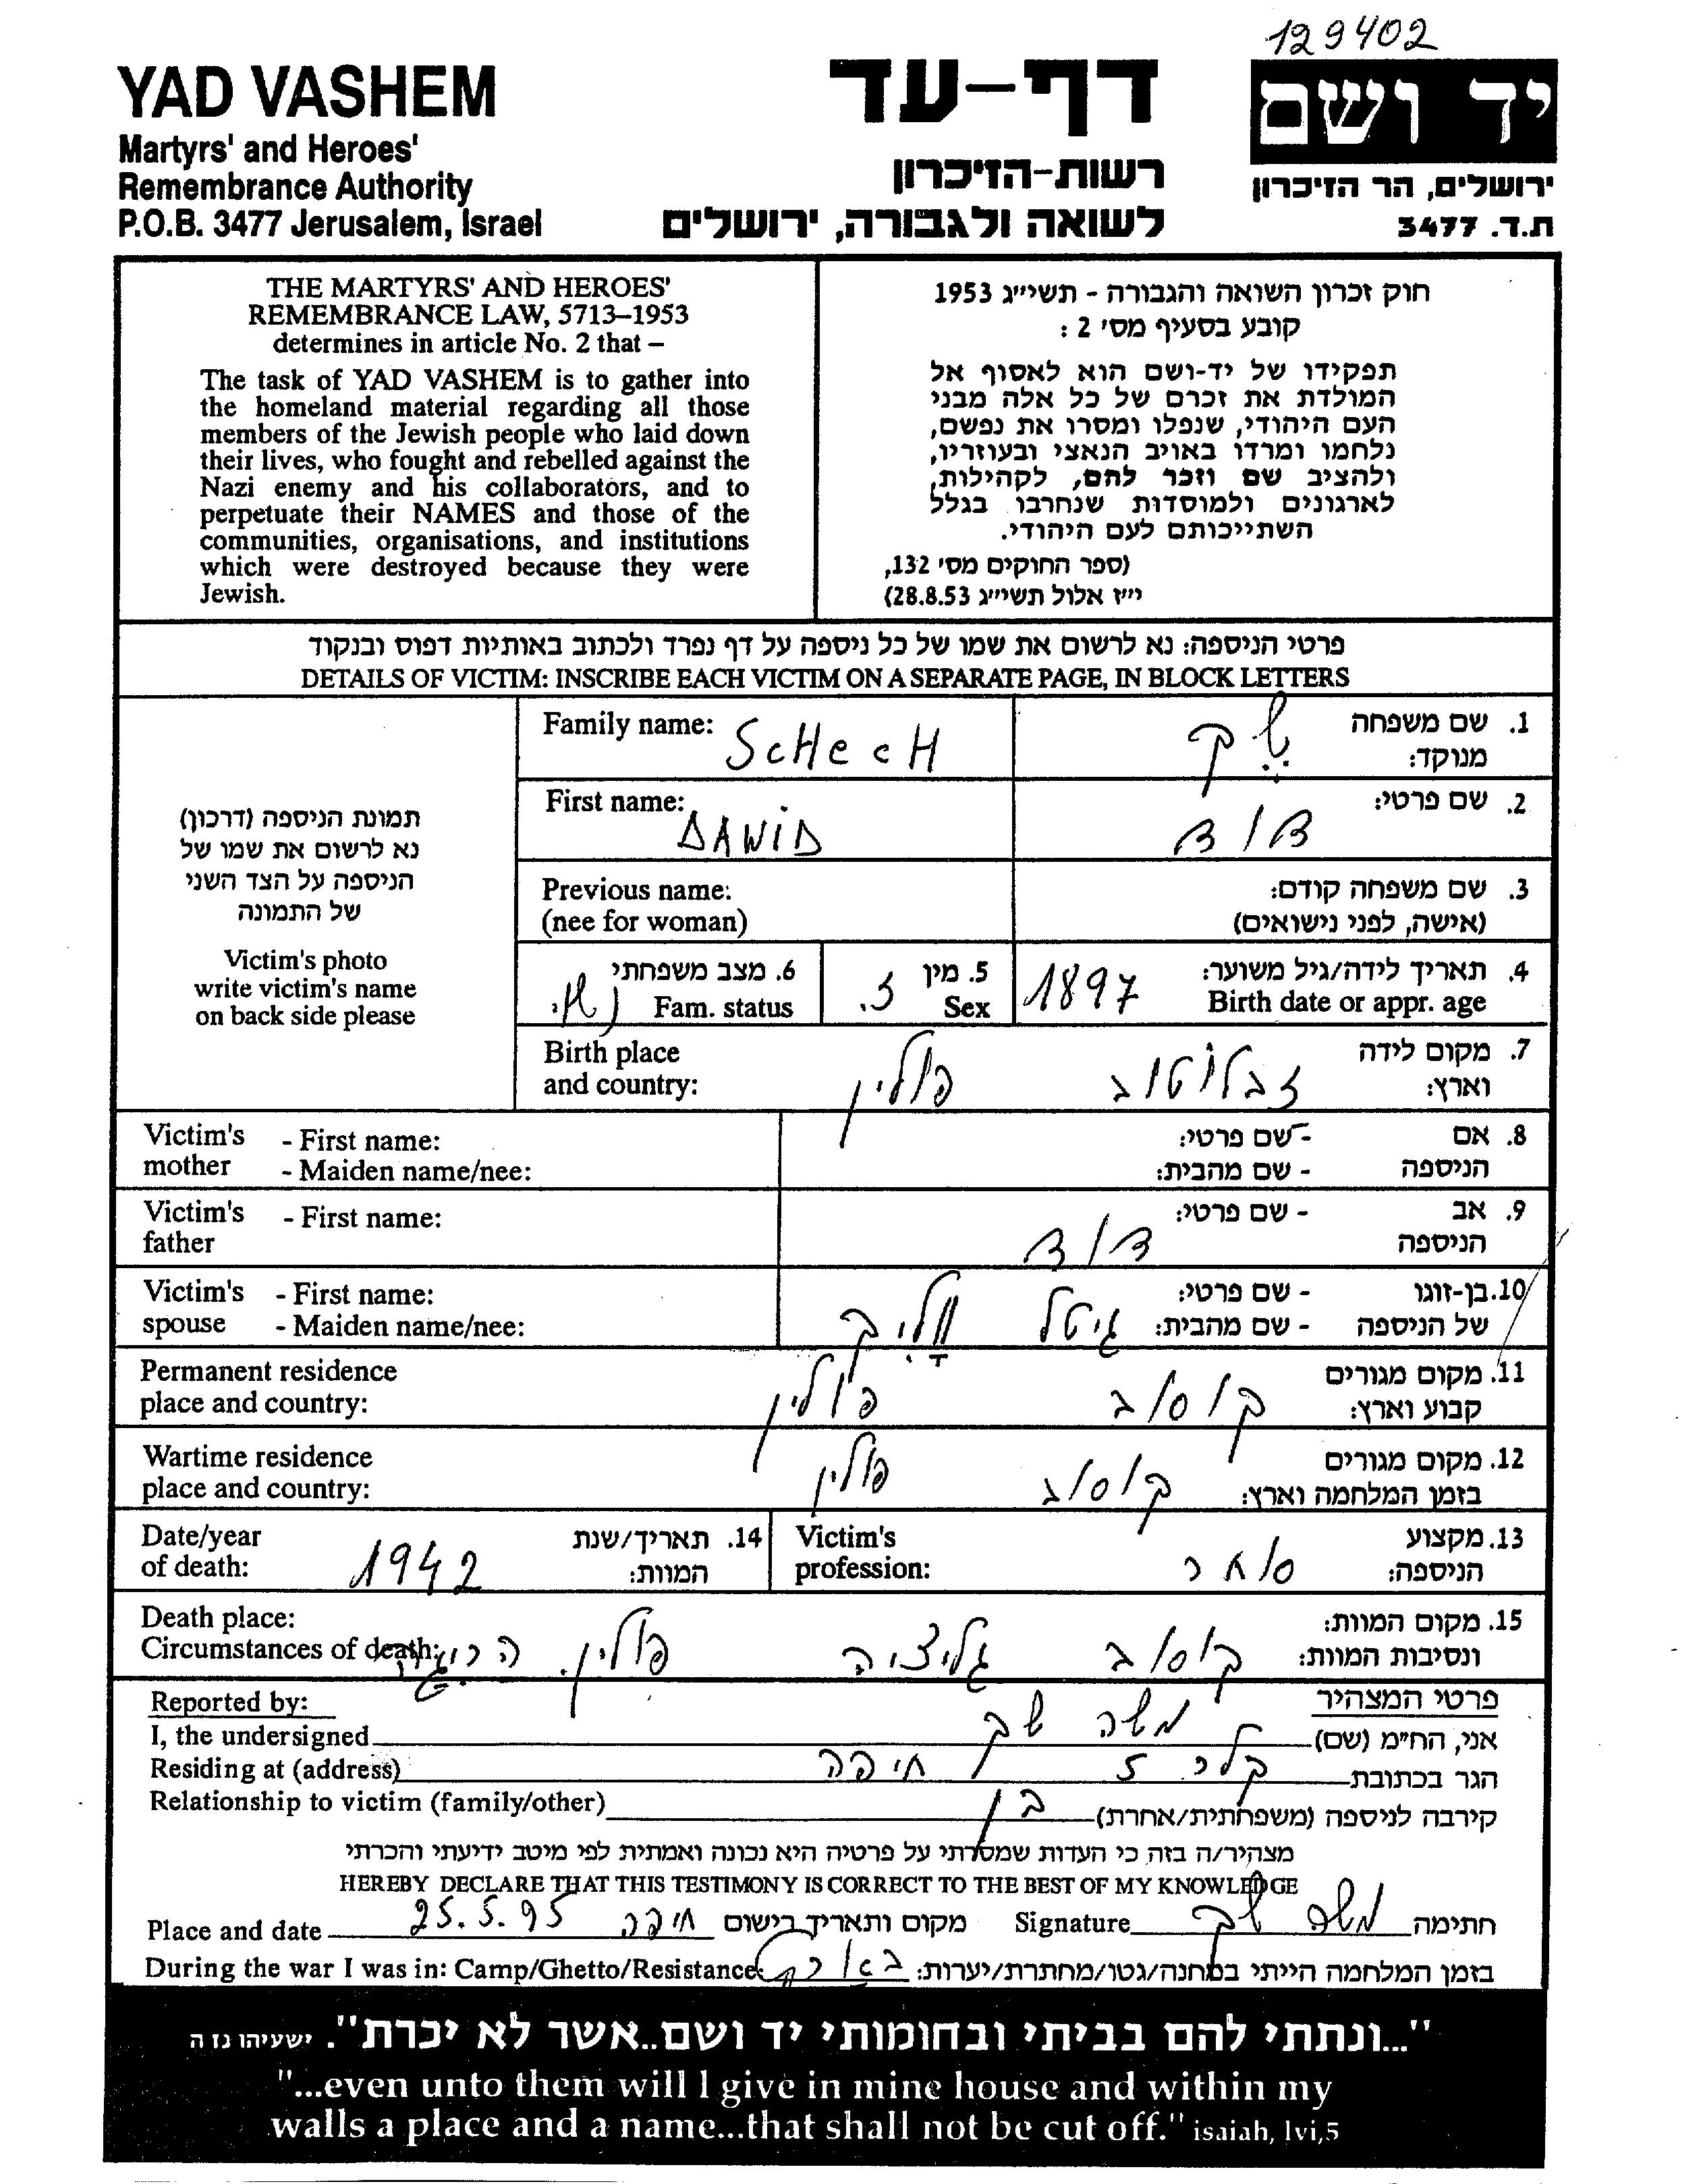 129402
YAD VASHEM
Martyrs' and Heroes'
Remembrance Authority
P.O.B. 3477 Jerusalem, Israel
דף-עד
רשות-הזיכרון
לשואה ולגבורה, ירושלים
יד ושם
ירושלים, הר הזיכרון
ת.ד. 3477
THE MARTYRS' AND HEROES'
REMEMBRANCE LAW, 5713–1953
determines in article No. 2 that –
The task of YAD VASHEM is to gather into
the homeland material regarding all those
members of the Jewish people who laid down
their lives, who fought and rebelled against the
Nazi enemy and his collaborators, and to
perpetuate their NAMES and those of the
communities, organisations, and institutions
which were destroyed because they were
Jewish.
חוק זכרון השואה והגבורה - תשי״ג 1953
קובע בסעיף מס׳ 2 :
תפקידו של יד-ושם הוא לאסוף אל
המולדת את זכרם של כל אלה מבני
העם היהודי, שנפלו ומסרו את נפשם,
נלחמו ומרדו באויב הנאצי ובעוזריו,
ולהציב שם וזכר להם, לקהילות,
לארגונים ולמוסדות שנחרבו בגלל
השתייכותם לעם היהודי.
(ספר החוקים מס׳ 132,
י״ז אלול תשי״ג 28.8.53)
פרטי הניספה: נא לרשום את שמו של כל ניספה על דף נפרד ולכתוב באותיות דפוס ובנקוד
DETAILS OF VICTIM: INSCRIBE EACH VICTIM ON A SEPARATE PAGE, IN BLOCK LETTERS
תמונת הניספה (דרכון)
נא לרשום את שמו של
הניספה על הצד השני
של התמונה
Victim's photo
write victim's name
on back side please
Family name: SCHECH
1. שם משפחה
מנוקד: שק
First name: DAWID
2. שם פרטי: דוד
Previous name:
(nee for woman)
3. שם משפחה קודם:
(אישה, לפני נישואים)
4. תאריך לידה/גיל משוער:
Birth date or appr. age 1897
5. מין
Sex ז.
6. מצב משפחתי
Fam. status נשוי.
Birth place
and country:
7. מקום לידה
וארץ: זבלוטוב פולין
Victim's mother - First name:
- Maiden name/nee:
8. אם הניספה - שם פרטי:
- שם מהבית:
Victim's father - First name:
9. אב הניספה - שם פרטי: דוד
Victim's spouse - First name:
- Maiden name/nee:
10. בן-זוגו של הניספה - שם פרטי:
- שם מהבית: גיטל
Permanent residence
place and country:
11. מקום מגורים
קבוע וארץ: קוסוב פולין
Wartime residence
place and country:
12. מקום מגורים
בזמן המלחמה וארץ: קוסוב פולין
13. מקצוע
הניספה: סוחר
Victim's
profession:
14. תאריך/שנת
המוות: 1942
Date/year
of death:
15. מקום המוות:
ונסיבות המוות: קוסוב גליציה פולין.
Death place:
Circumstances of death:
Reported by:
פרטי המצהיר
I, the undersigned
אני, הח״מ (שם) משה שק
Residing at (address)
הגר בכתובת 5 חיפה
Relationship to victim (family/other)
קירבה לניספה (משפחתית/אחרת) בן
מצהיר/ה בזה כי העדות שמסרתי על פרטיה היא נכונה ואמתית לפי מיטב ידיעתי והכרתי
HEREBY DECLARE THAT THIS TESTIMONY IS CORRECT TO THE BEST OF MY KNOWLEDGE
Place and date 25.5.95 חיפה מקום ותאריך רישום
Signature משה שק חתימה
During the war I was in: Camp/Ghetto/Resistance
בזמן המלחמה הייתי במחנה/גטו/מחתרת/יערות:
"...ונתתי להם בביתי ובחומותי יד ושם..אשר לא יכרת". ישעיהו נז ה
"...even unto them will I give in mine house and within my
walls a place and a name...that shall not be cut off." isaiah, lvi,5